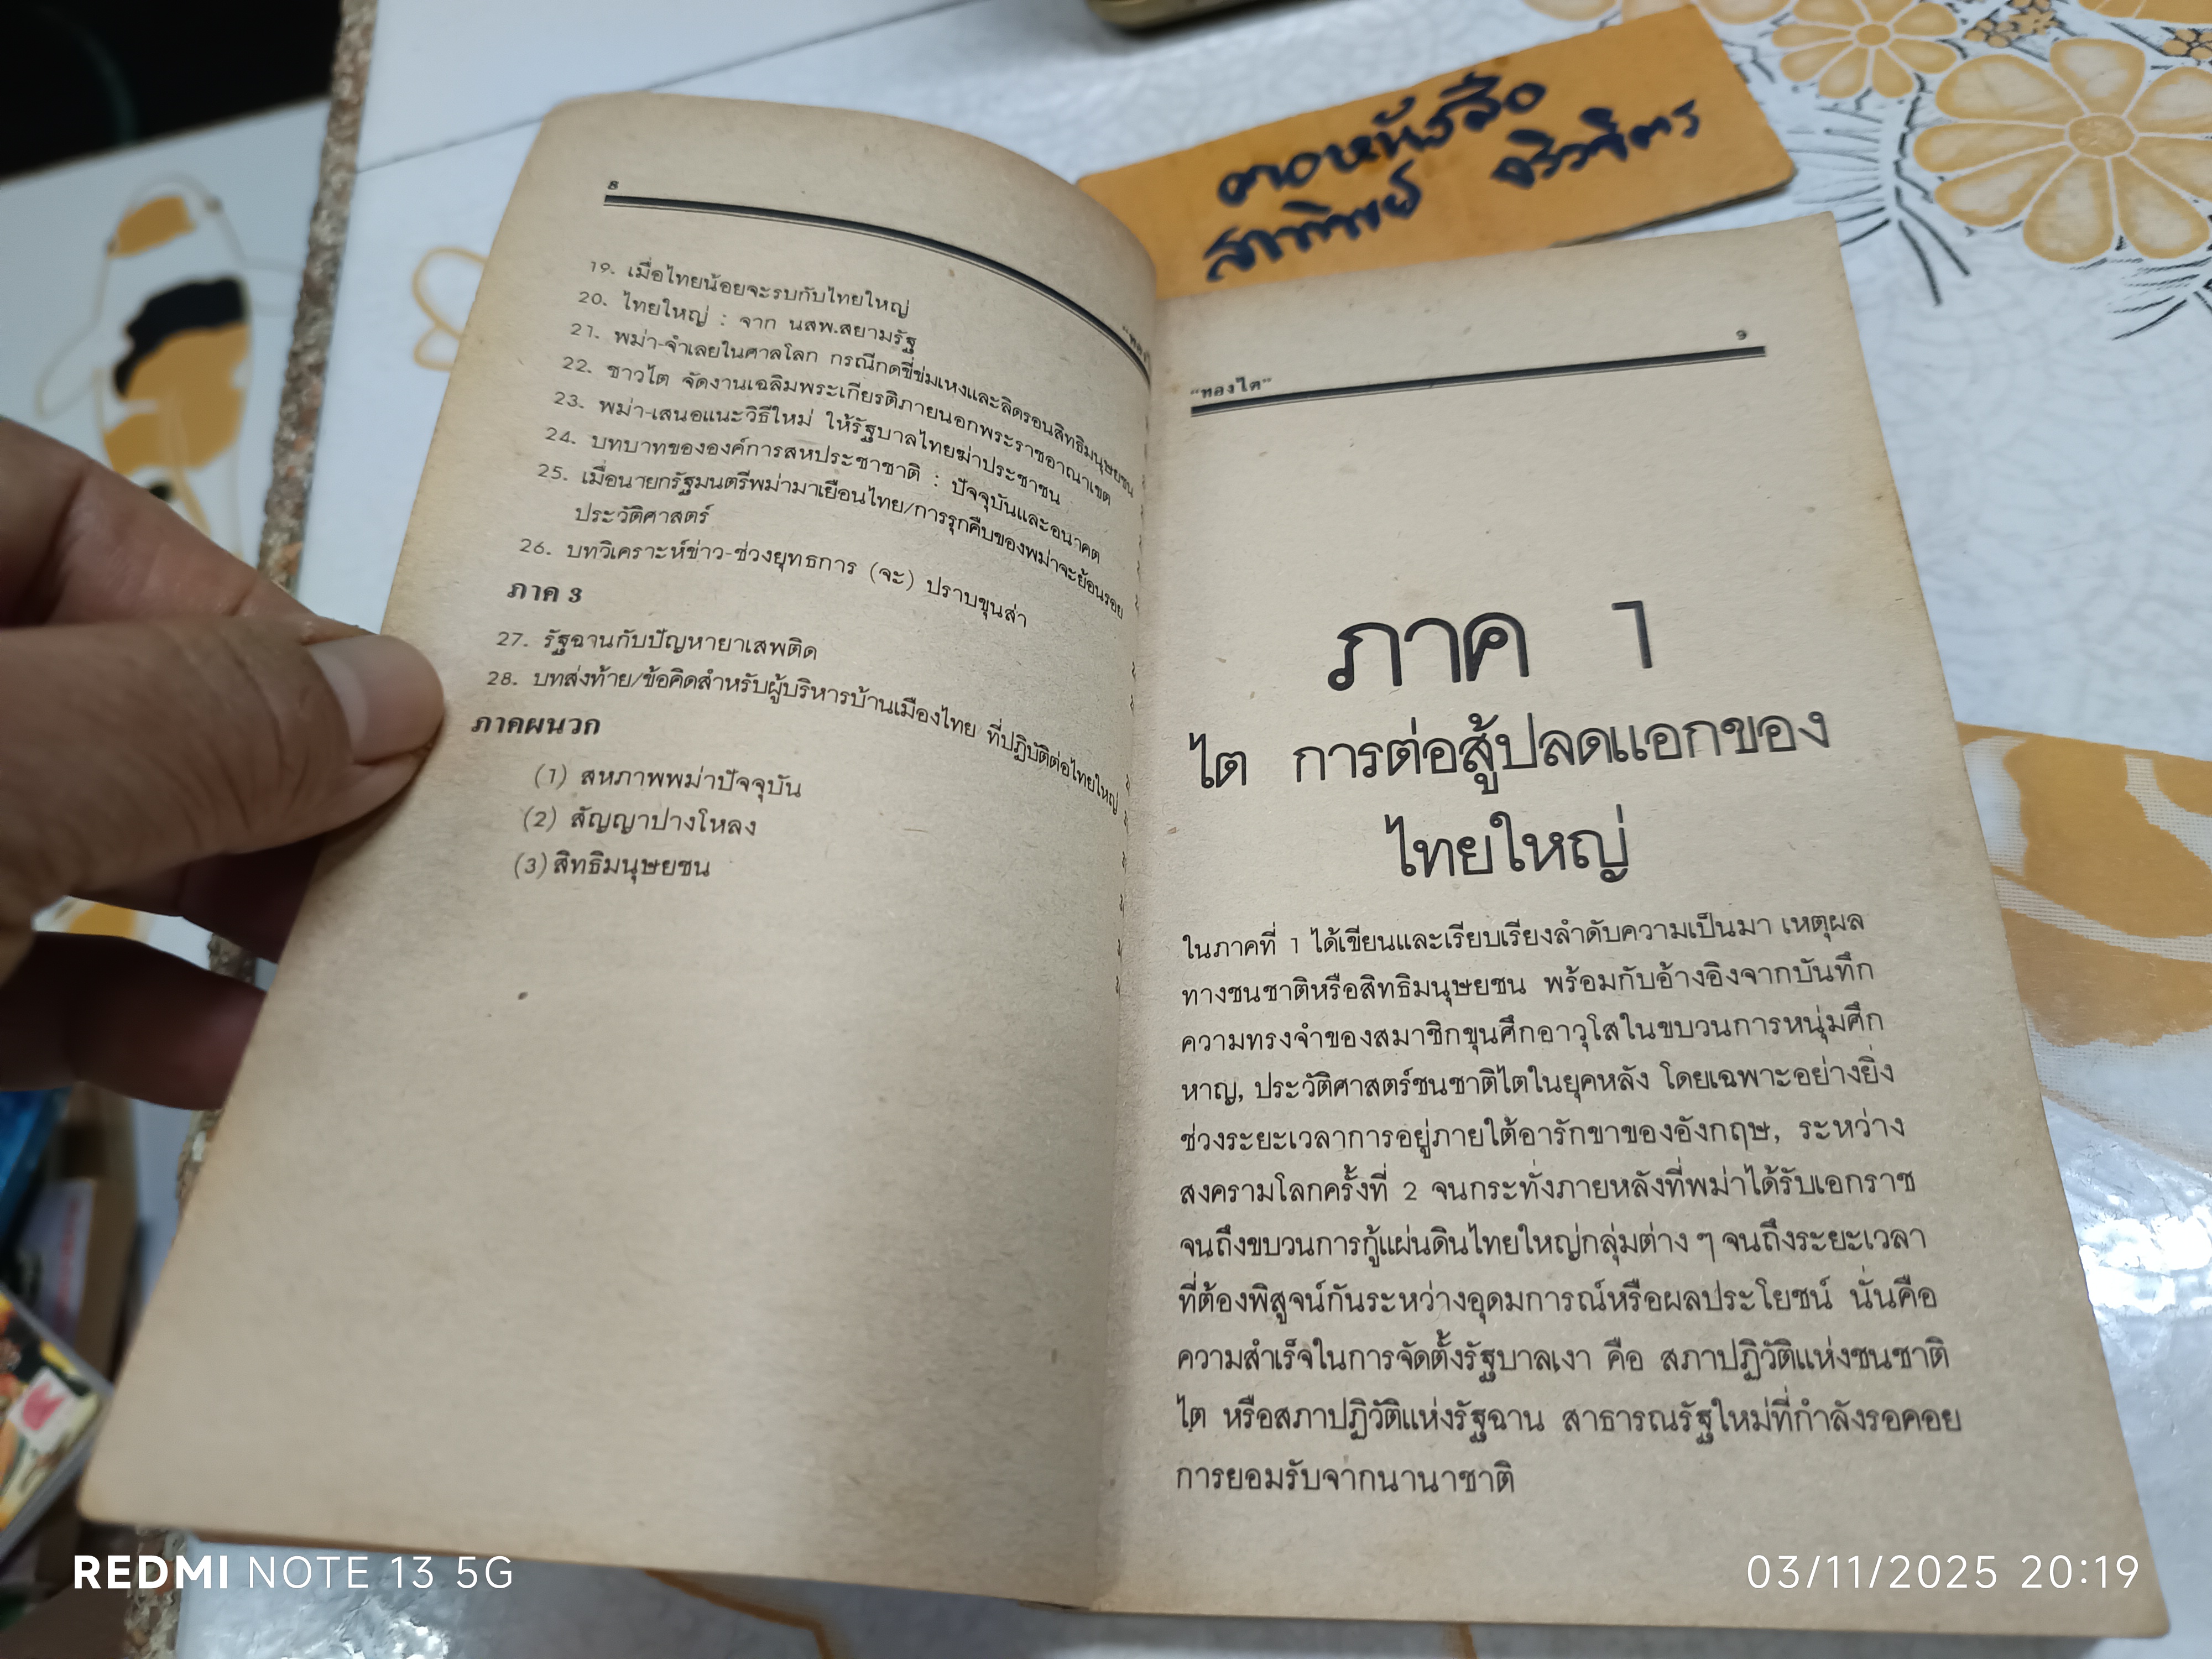 คอหนังสือ
8
19. เมื่อไทยน้อยจะรบกับไทยใหญ่
20. ไทยใหญ่ : จาก นสพ.สยามรัฐ
21. พม่า-จำเลยในศาลโลก กรณีกดขี่ข่มเหงและลิดรอนสิทธิมนุษยชน
22. ชาวไต จัดงานเฉลิมพระเกียรติภายนอกพระราชอาณาเขต
23. พม่า-เสนอแนะวิธีใหม่ ให้รัฐบาลไทยฆ่าประชาชน
24. บทบาทขององค์การสหประชาชาติ : ปัจจุบันและอนาคต
25. เมื่อนายกรัฐมนตรีพม่ามาเยือนไทย/การรุกคืบของพม่าจะย้อนรอย
ประวัติศาสตร์
26. บทวิเคราะห์ข่าว-ช่วงยุทธการ (จะ) ปราบขุนส่า
ภาค 3
27. รัฐฉานกับปัญหายาเสพติด
28. บทส่งท้าย/ข้อคิดสำหรับผู้บริหารบ้านเมืองไทย ที่ปฏิบัติต่อไทยใหญ่
ภาคผนวก
(1) สหภาพพม่าปัจจุบัน
(2) สัญญาปางโหลง
(3) สิทธิมนุษยชน
"ทองไต" 9
ภาค 1
ไต การต่อสู้ปลดแอกของ
ไทยใหญ่
ในภาคที่ 1 ได้เขียนและเรียบเรียงลำดับความเป็นมา เหตุผล
ทางชนชาติหรือสิทธิมนุษยชน พร้อมกับอ้างอิงจากบันทึก
ความทรงจำของสมาชิกขุนศึกอาวุโสในขบวนการหนุ่มศึก
หาญ, ประวัติศาสตร์ชนชาติไตในยุคหลัง โดยเฉพาะอย่างยิ่ง
ช่วงระยะเวลาการอยู่ภายใต้อารักขาของอังกฤษ, ระหว่าง
สงครามโลกครั้งที่ 2 จนกระทั่งภายหลังที่พม่าได้รับเอกราช
จนถึงขบวนการกู้แผ่นดินไทยใหญ่กลุ่มต่าง ๆ จนถึงระยะเวลา
ที่ต้องพิสูจน์กันระหว่างอุดมการณ์หรือผลประโยชน์ นั่นคือ
ความสำเร็จในการจัดตั้งรัฐบาลเงา คือ สภาปฏิวัติแห่งชนชาติ
ไต หรือสภาปฏิวัติแห่งรัฐฉาน สาธารณรัฐใหม่ที่กำลังรอคอย
การยอมรับจากนานาชาติ
REDMI NOTE 13 5G
03/11/2025 20:19